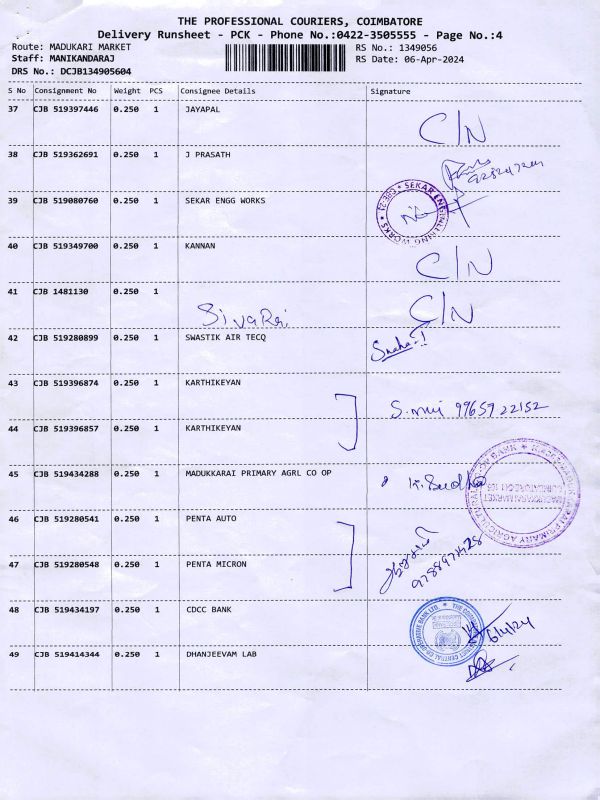 THE PROFESSIONAL COURIERS, COIMBATORE
Delivery Runsheet - PCK - Phone No.:0422-3505555 - Page No.:4
Route: MADUKARI MARKET RS No.: 1349056
Staff: MANIKANDARAJ RS Date: 06-Apr-2024
DRS No.: DCJB134905604
S No Consignment No Weight PCS Consignee Details Signature
37 CJB 519397446 0.250 1 JAYAPAL
C/N
38 CJB 519362691 0.250 1 J PRASATH
39 CJB 519080760 0.250 1 SEKAR ENGG WORKS
SEKAR ENGINEERING WORKS CBE-21
40 CJB 519349700 0.250 1 KANNAN
C/N
41 CJB 1481130 0.250 1
SivaRaj C/N
42 CJB 519280899 0.250 1 SWASTIK AIR TECQ
43 CJB 519396874 0.250 1 KARTHIKEYAN
99659 22152
44 CJB 519396857 0.250 1 KARTHIKEYAN
45 CJB 519434288 0.250 1 MADUKKARAI PRIMARY AGRL CO OP
K. Sudha
46 CJB 519280541 0.250 1 PENTA AUTO
47 CJB 519280548 0.250 1 PENTA MICRON
48 CJB 519434197 0.250 1 CDCC BANK
6/4/24
49 CJB 519414344 0.250 1 DHANJEEVAM LAB